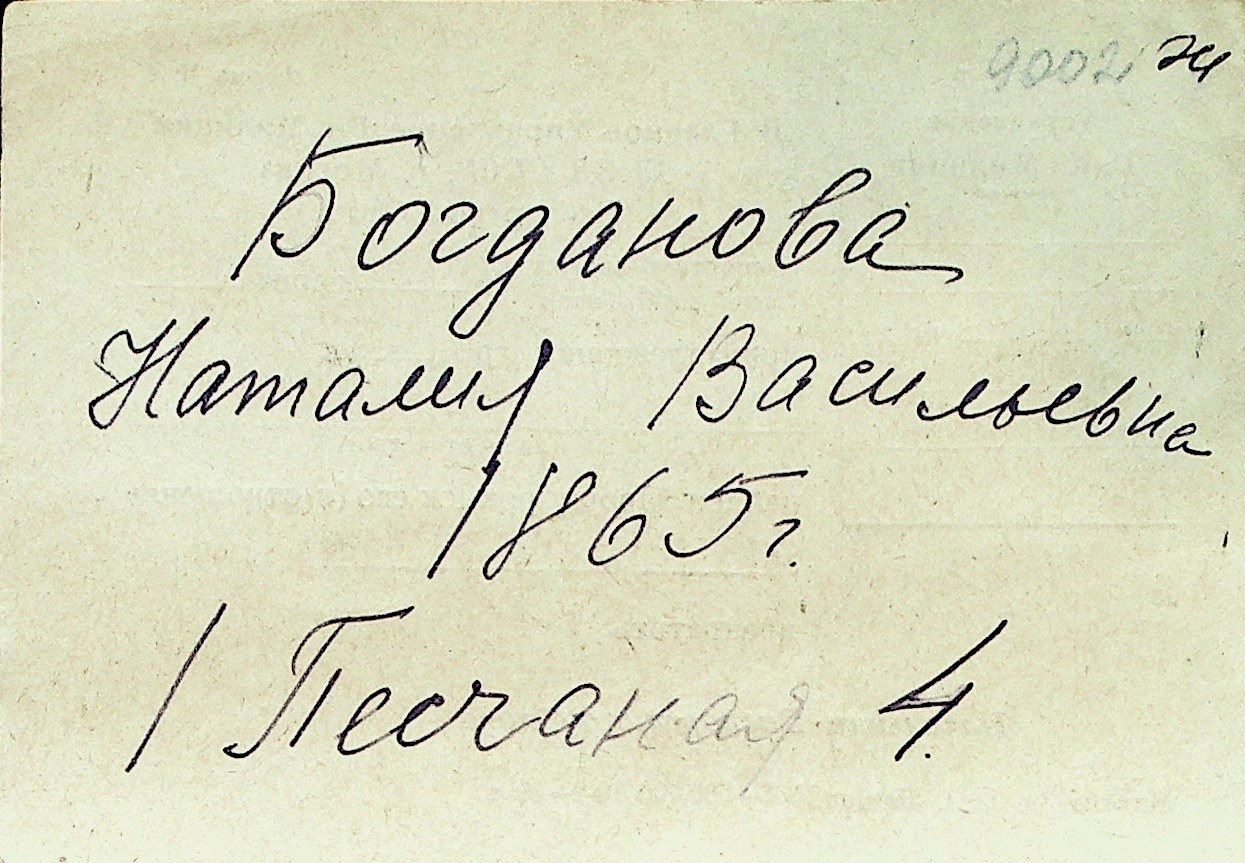 9002 ж
Богданова
Наталия Васильевна
1865г.
1 Песчаная 4.